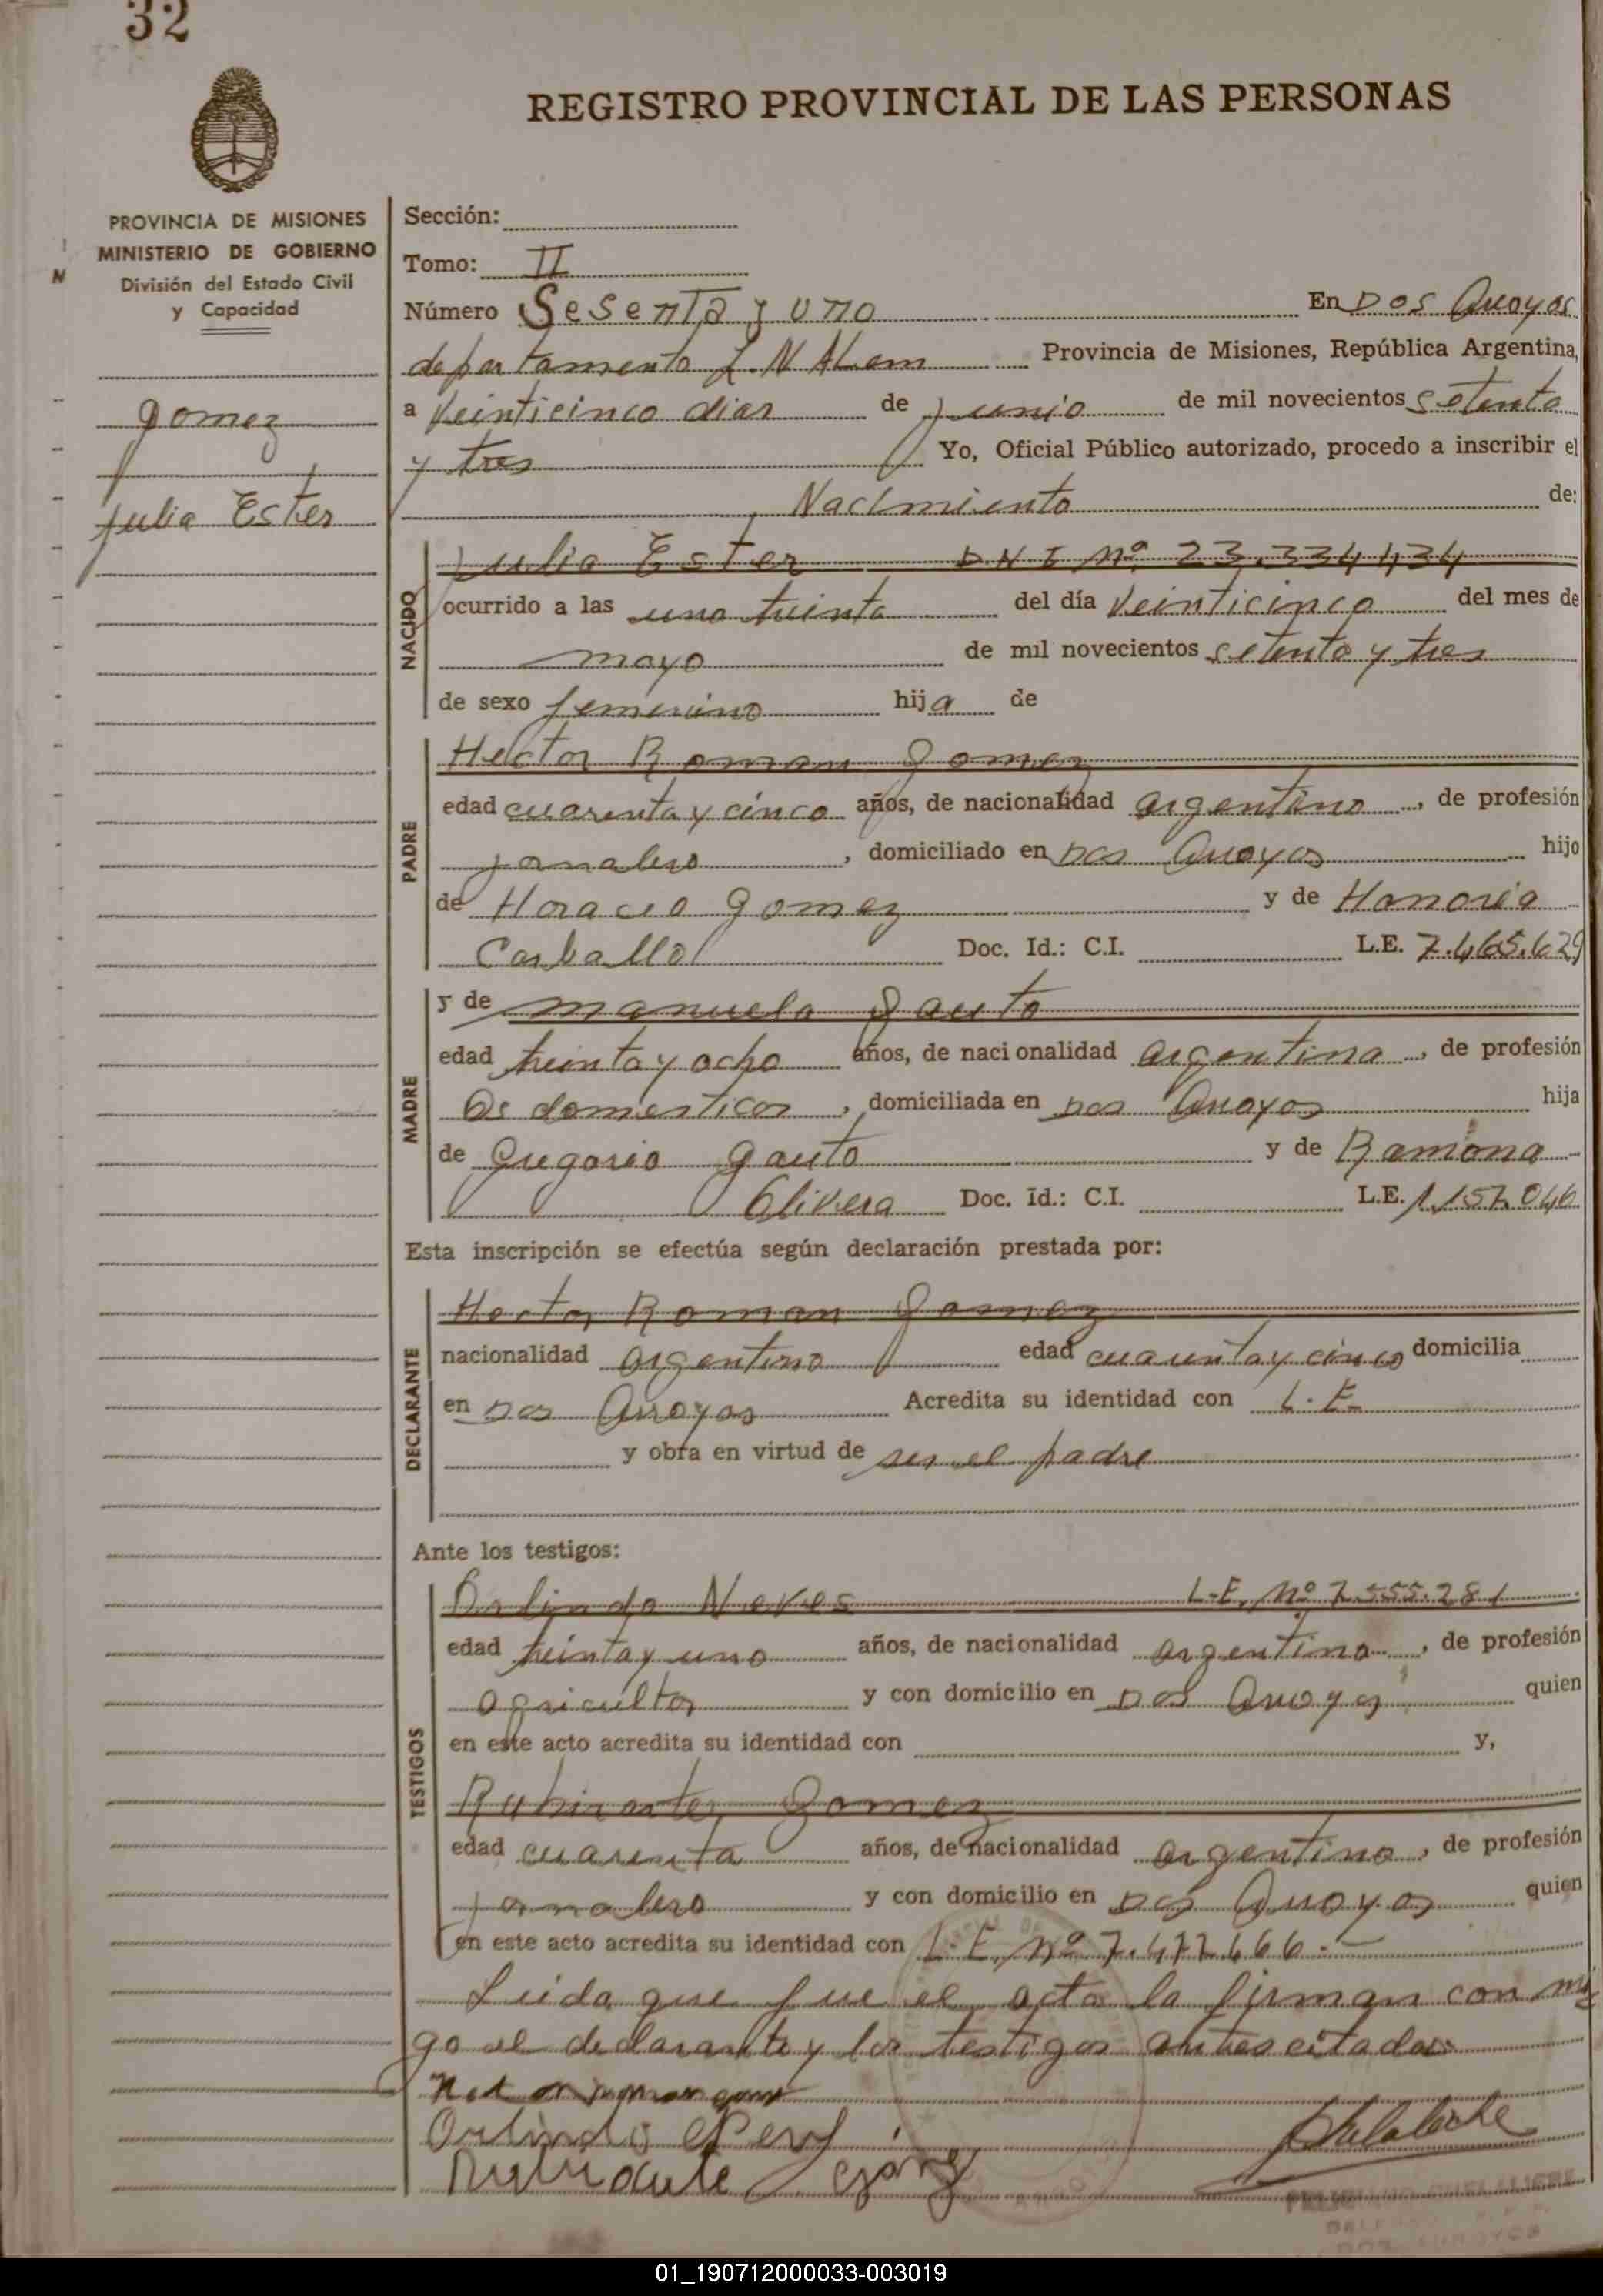 32
REGISTRO PROVINCIAL DE LAS PERSONAS
PROVINCIA DE MISIONES
MINISTERIO DE GOBIERNO
División del Estado Civil
y Capacidad
Gomez
Julia Ester
Sección:
Tomo: II
Número Sesenta y uno En Dos Arroyos
departamento L. N. Alem Provincia de Misiones, República Argentina,
a veinticinco dias de junio de mil novecientos setenta
y tres Yo, Oficial Público autorizado, procedo a inscribir el
Nacimiento de:
NACIDO
Julia Ester D N I Nº 23.334.434
ocurrido a las una treinta del día veinticinco del mes de
mayo de mil novecientos setenta y tres
de sexo femenino hija de
PADRE
Hector Roman Gomez
edad cuarenta y cinco años, de nacionalidad argentino, de profesión
jornalero, domiciliado en Dos Arroyos hijo
de Horacio Gomez y de Honoria
Carballo Doc. Id.: C.I. L.E. 7.465.629
MADRE
y de Manuela Gauto
edad treinta y ocho años, de nacionalidad argentina, de profesión
Qs domesticos, domiciliada en Dos Arroyos hija
de Gregorio Gauto y de Ramona
Olivera Doc. Id.: C.I. L.E. 1.157.046
Esta inscripción se efectúa según declaración prestada por:
DECLARANTE
Hector Roman Gomez
nacionalidad argentino edad cuarenta y cinco domicilia
en Dos Arroyos Acredita su identidad con L. E.
y obra en virtud de ser el padre
Ante los testigos:
TESTIGOS
Orlindo Neves L.E. Nº 7.555.281
edad treinta y uno años, de nacionalidad argentino, de profesión
agricultor y con domicilio en Dos Arroyos quien
en este acto acredita su identidad con y,
Gomez
edad cuarenta años, de nacionalidad argentino, de profesión
jornalero y con domicilio en Dos Arroyos quien
en este acto acredita su identidad con L. E. nº 7.477.666.-
Leida que fue el acta la firman con mi
go el declarante y los testigos antes citados
Orlindo
DOS ARROYOS
01_190712000033-003019